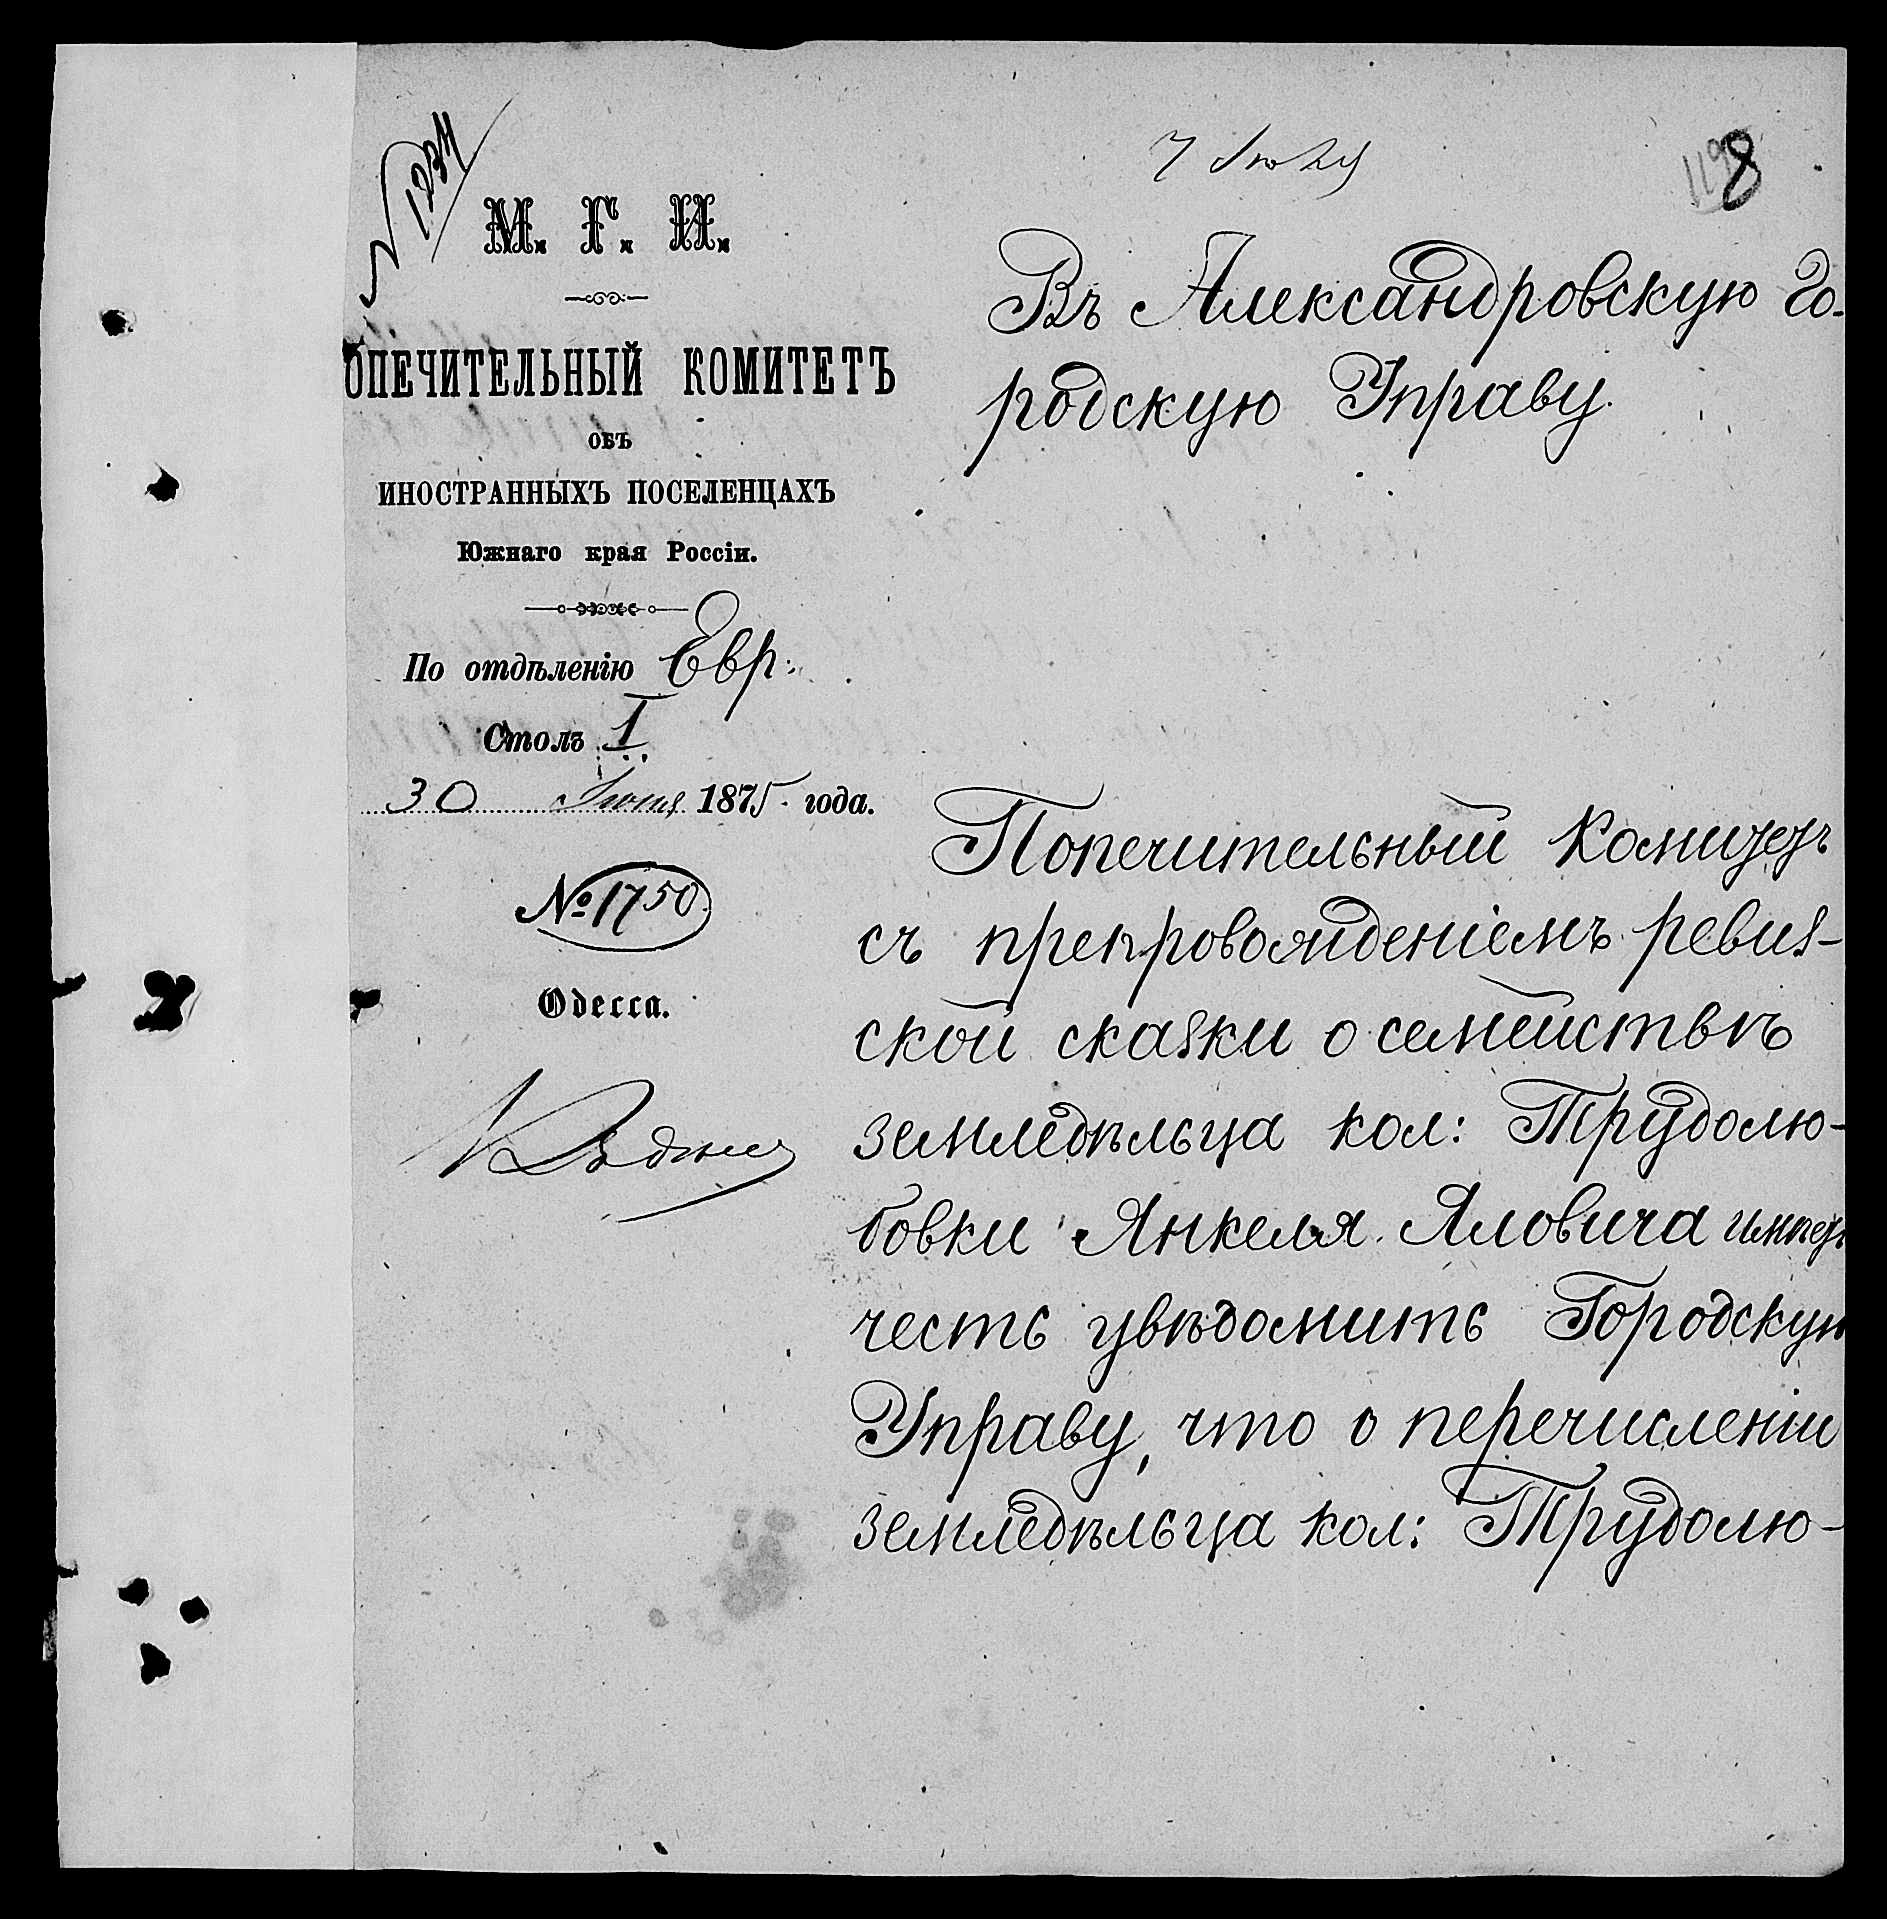 № 1234
7 Іюля
8
М. Г. И.
ОПЕЧИТЕЛЬНЫЙ КОМИТЕТЪ
ОБЪ
ИНОСТРАННЫХЪ ПОСЕЛЕНЦАХЪ
Южнаго края Россіи.
По отдѣленію Евр:
Столъ I
30 Іюня 1875 года.
№ 1750
Одесса.
Въ Александровскую Го-
родскую Управу.
Попечительный Комитетъ
съ препровожденіемъ ревиз-
ской сказки о семействѣ
земледѣльца кол: Трудолю-
бовки Янкеля Яловича имѣетъ
честь увѣдомить Городскую
Управу, что о перечисленіи
земледѣльца кол: Трудолю-